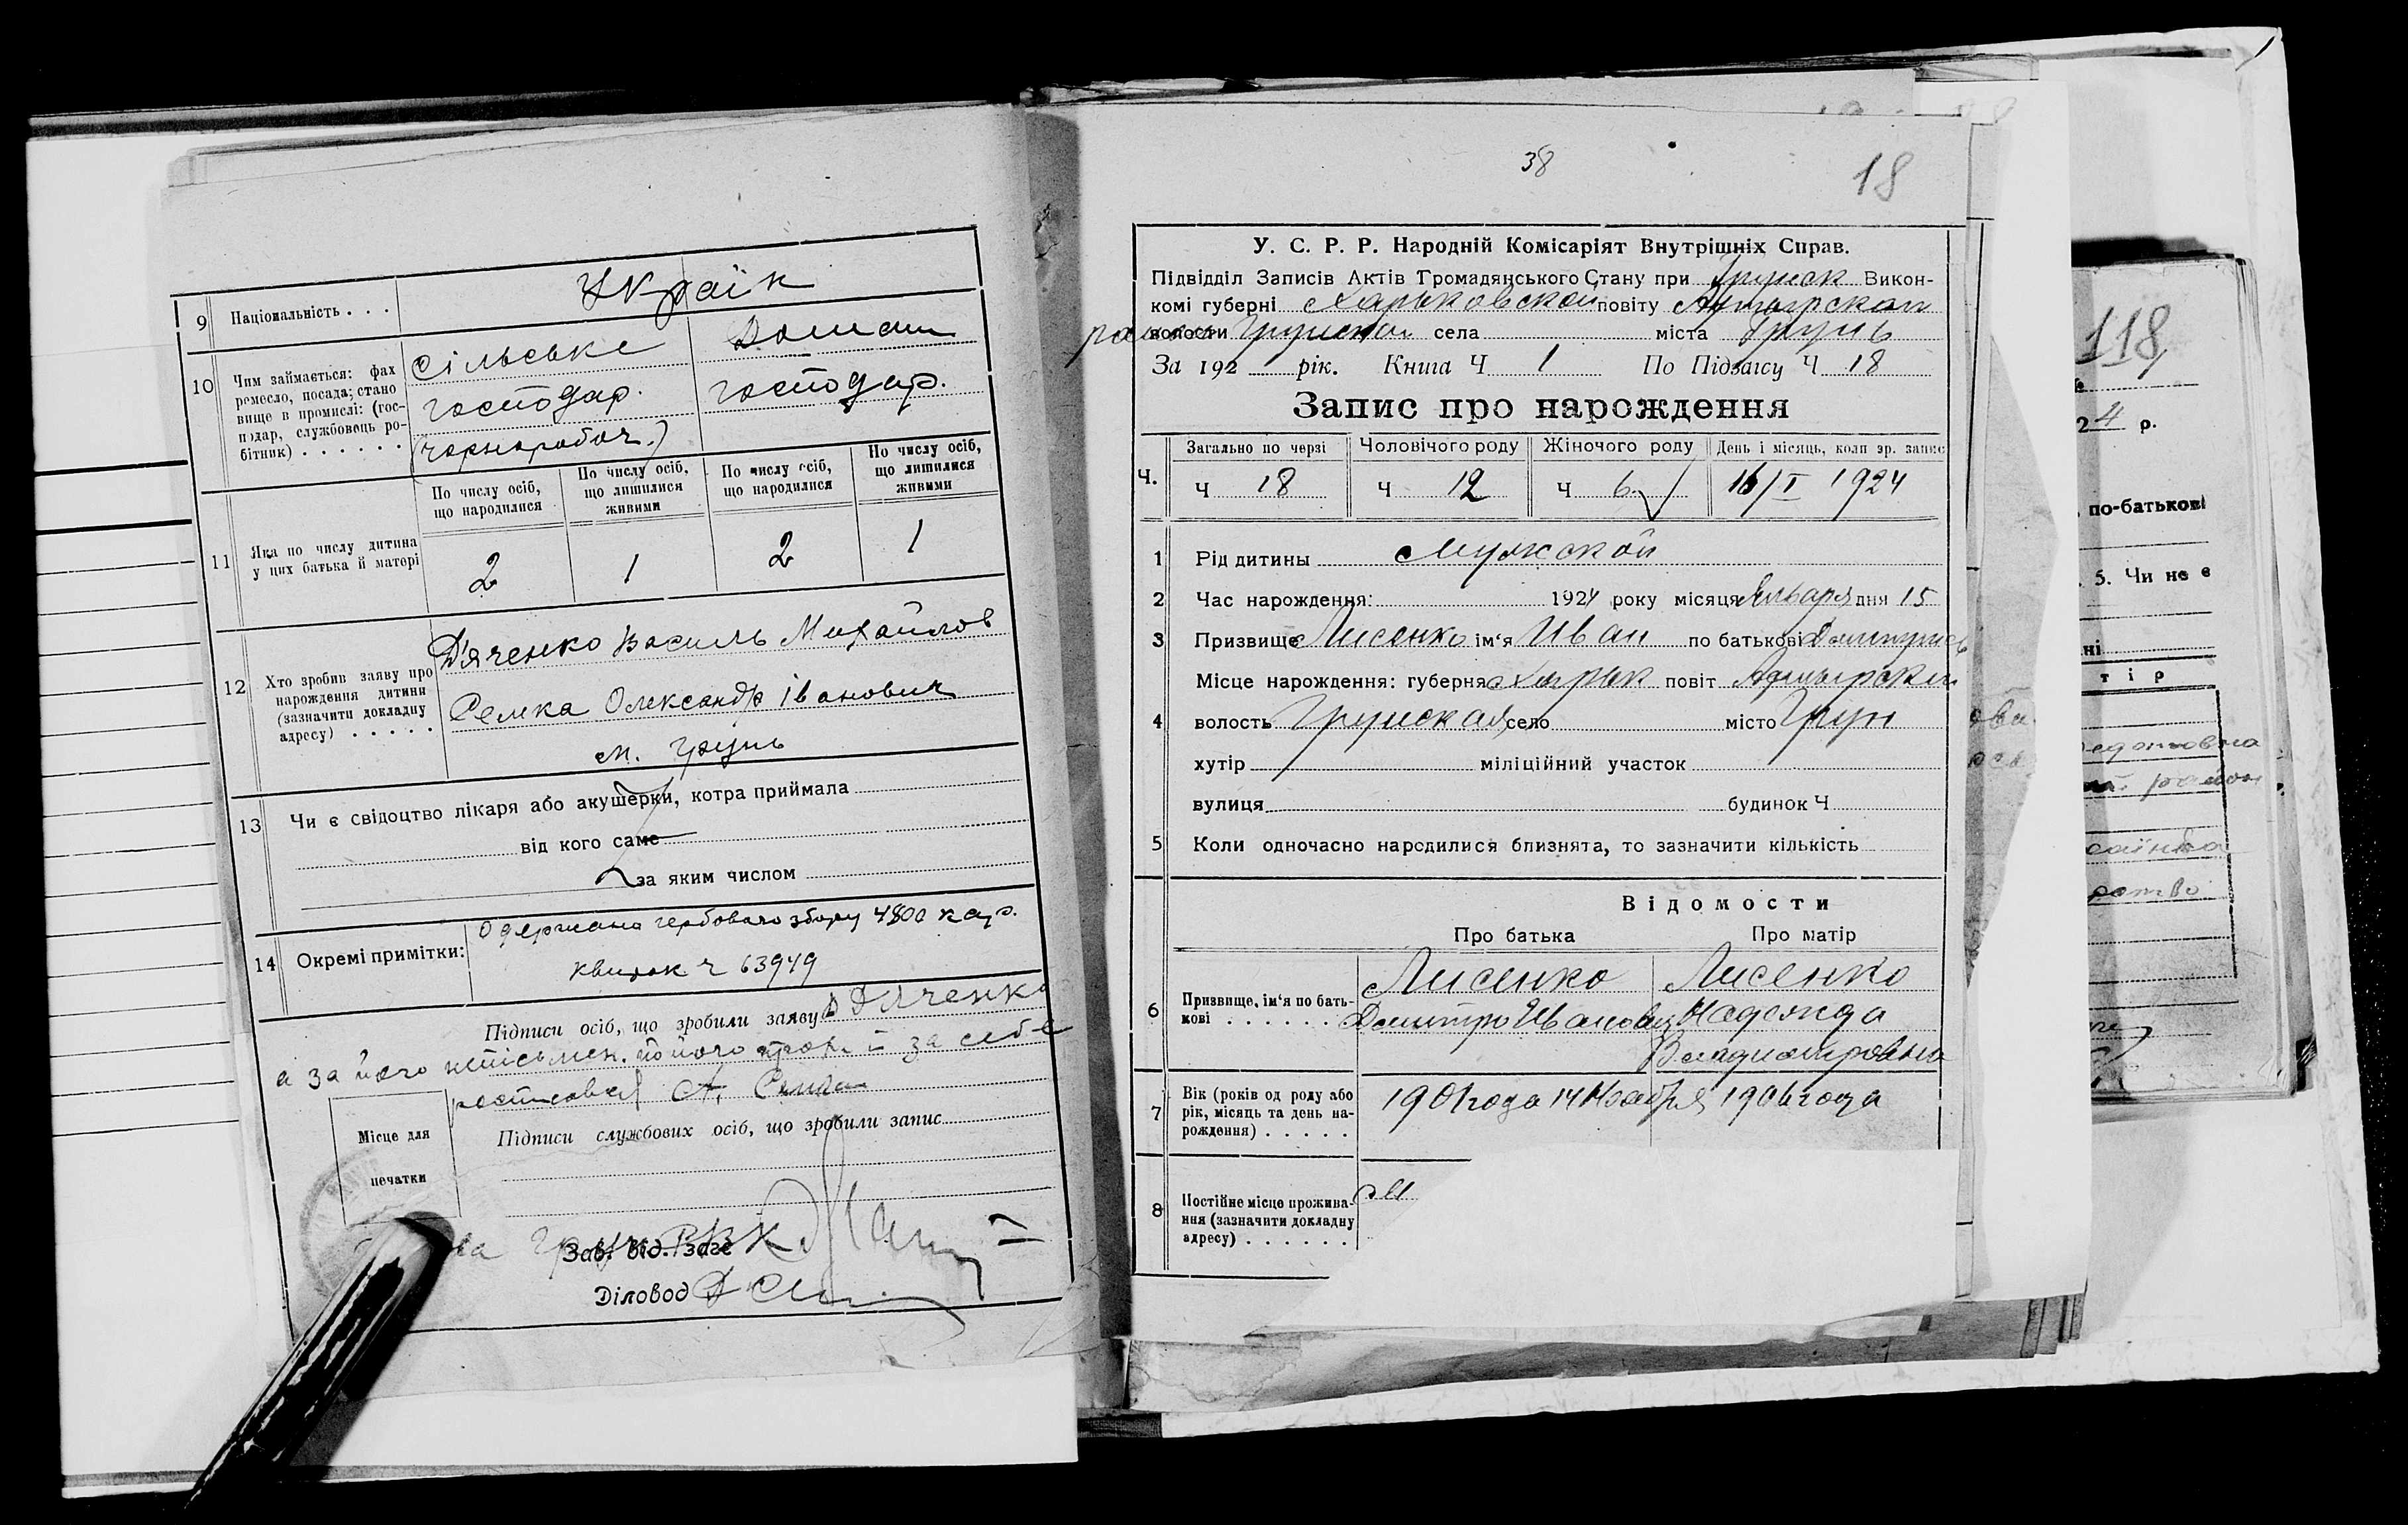 9 Національність . . . Україн
10 Чим займається: фах
ремесло, посада; стано
вище в промислі: (гос-
подар, службовець ро-
бітник) . . . . . .
сільське
господар.
(чорнороboч.)
Домашн
господар.
11 Яка по числу дитина
у цих батька й матері
По числу осіб,
що народилися
По числу осіб,
що лишилися
живими
По числу осіб,
що народилися
По числу осіб,
що лишилися
живими
2 1 2 1
12 Хто зробив заяву про
нарождення дитини
(зазначити докладну
адресу) . . . . .
Д'яченко Василь Михайлов
Семка Олександр Іванович
м. Грунь
13 Чи є свідоцтво лікаря або акушерки, котра приймала
від кого саме
за яким числом
14 Окремі примітки:
Одержано гербового збору 4800 кар.
квиток ч 63949
Підписи осіб, що зробили заяву Дяченко
а за його неписьмен. по його прох. й за себе
росписався А. Семка
Місце для
печатки
Підписи службових осіб, що зробили запис
Зав. від. загс
Діловод
38
18
У. С. Р. Р. Народній Комісаріят Внутрішніх Справ.
Підвідділ Записів Актів Громадянського Стану при Грунск Викон-
комі губерні Харьковской повіту Ахтырской
волости Грунской села міста Грунь
За 192 рік. Книга Ч 1 По Підзагсу Ч 18
Запис про нарождення
Ч.
Загально по черзі Чоловічого роду Жіночого роду День і місяць, коли зр. запис
Ч 18 Ч 12 Ч 6 16/I 1924
1 Рід дитины мужской
2 Час нарождення: 1924 року місяця Января дня 15
3 Призвище Лисенко ім'я Иван по батькові Дмитриев
4 Місце нарождення: губерня Харьк повіт Ахтырский
волость Грунская село місто Грун
хутір міліційний участок
вулиця будинок Ч
5 Коли одночасно народилися близнята, то зазначити кількість
Відомости
Про батька Про матір
6 Призвище, ім'я по бать-
кові . . . . . .
Лисенко
Дмитро Иванович
Лисенко
Надежда
Владимировна
7 Вік (років од роду або
рік, місяць та день на-
рождення) . . . . .
1901 года 14 Ноября 1906 года
8 Постійне місце прожива-
ння (зазначити докладну
адресу) . . . . . .
118
24 р.
по-батькові
5. Чи не є
ні
тір
район